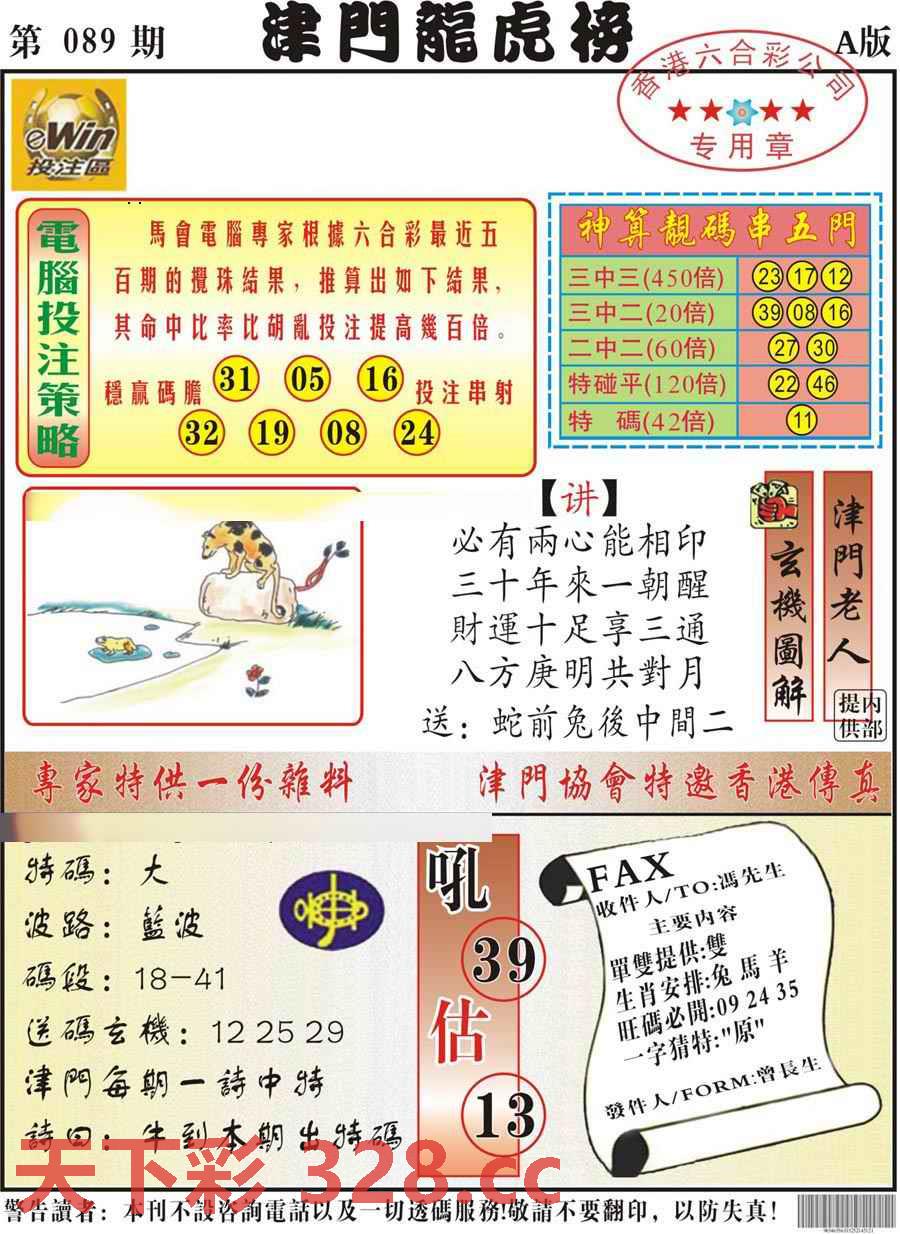 第 089 期
津門龍虎榜
A版
香港六合彩公司
专用章
eWin
投注區
電腦投注策略
馬會電腦專家根據六合彩最近五
百期的攪珠結果，推算出如下結果，
其命中比率比胡亂投注提高幾百倍。
穩贏碼膽 31 05 16 投注串射
32 19 08 24
神算靚碼串五門
三中三(450倍) 23 17 12
三中二(20倍) 39 08 16
二中二(60倍) 27 30
特碰平(120倍) 22 46
特 碼(42倍) 11
【讲】
必有兩心能相印
三十年來一朝醒
財運十足享三通
八方庚明共對月
送：蛇前兔後中間二
玄機圖解
津門老人
内部提供
專家特供一份雜料
津門協會特邀香港傳真
特碼：大
波路：藍波
碼段：18-41
送碼玄機：12 25 29
津門每期一詩中特
詩曰：牛到本期出特碼
吼
39
估
13
FAX
收件人/TO:馮先生
主要内容
單雙提供:雙
生肖安排:兔 馬 羊
旺碼必開:09 24 35
一字猜特:"原"
發件人/FORM:曾長生
天下彩 328.cc
警告讀者：本刊不設咨詢電話以及一切透碼服務!敬請不要翻印，以防失真！